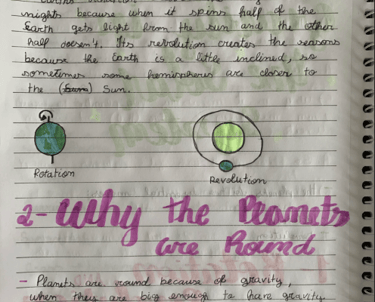 nights because when it spins half of the
Earth gets light from the sun and the other
half doesn't. Its revolution creates the seasons
because the Earth is a little inclined, so
sometimes some hemispheres are closer to
the Sun.
Rotation
Revolution
2- Why the Planets
are Round
- Planets are round because of gravity,
when they are big enough to have gravity